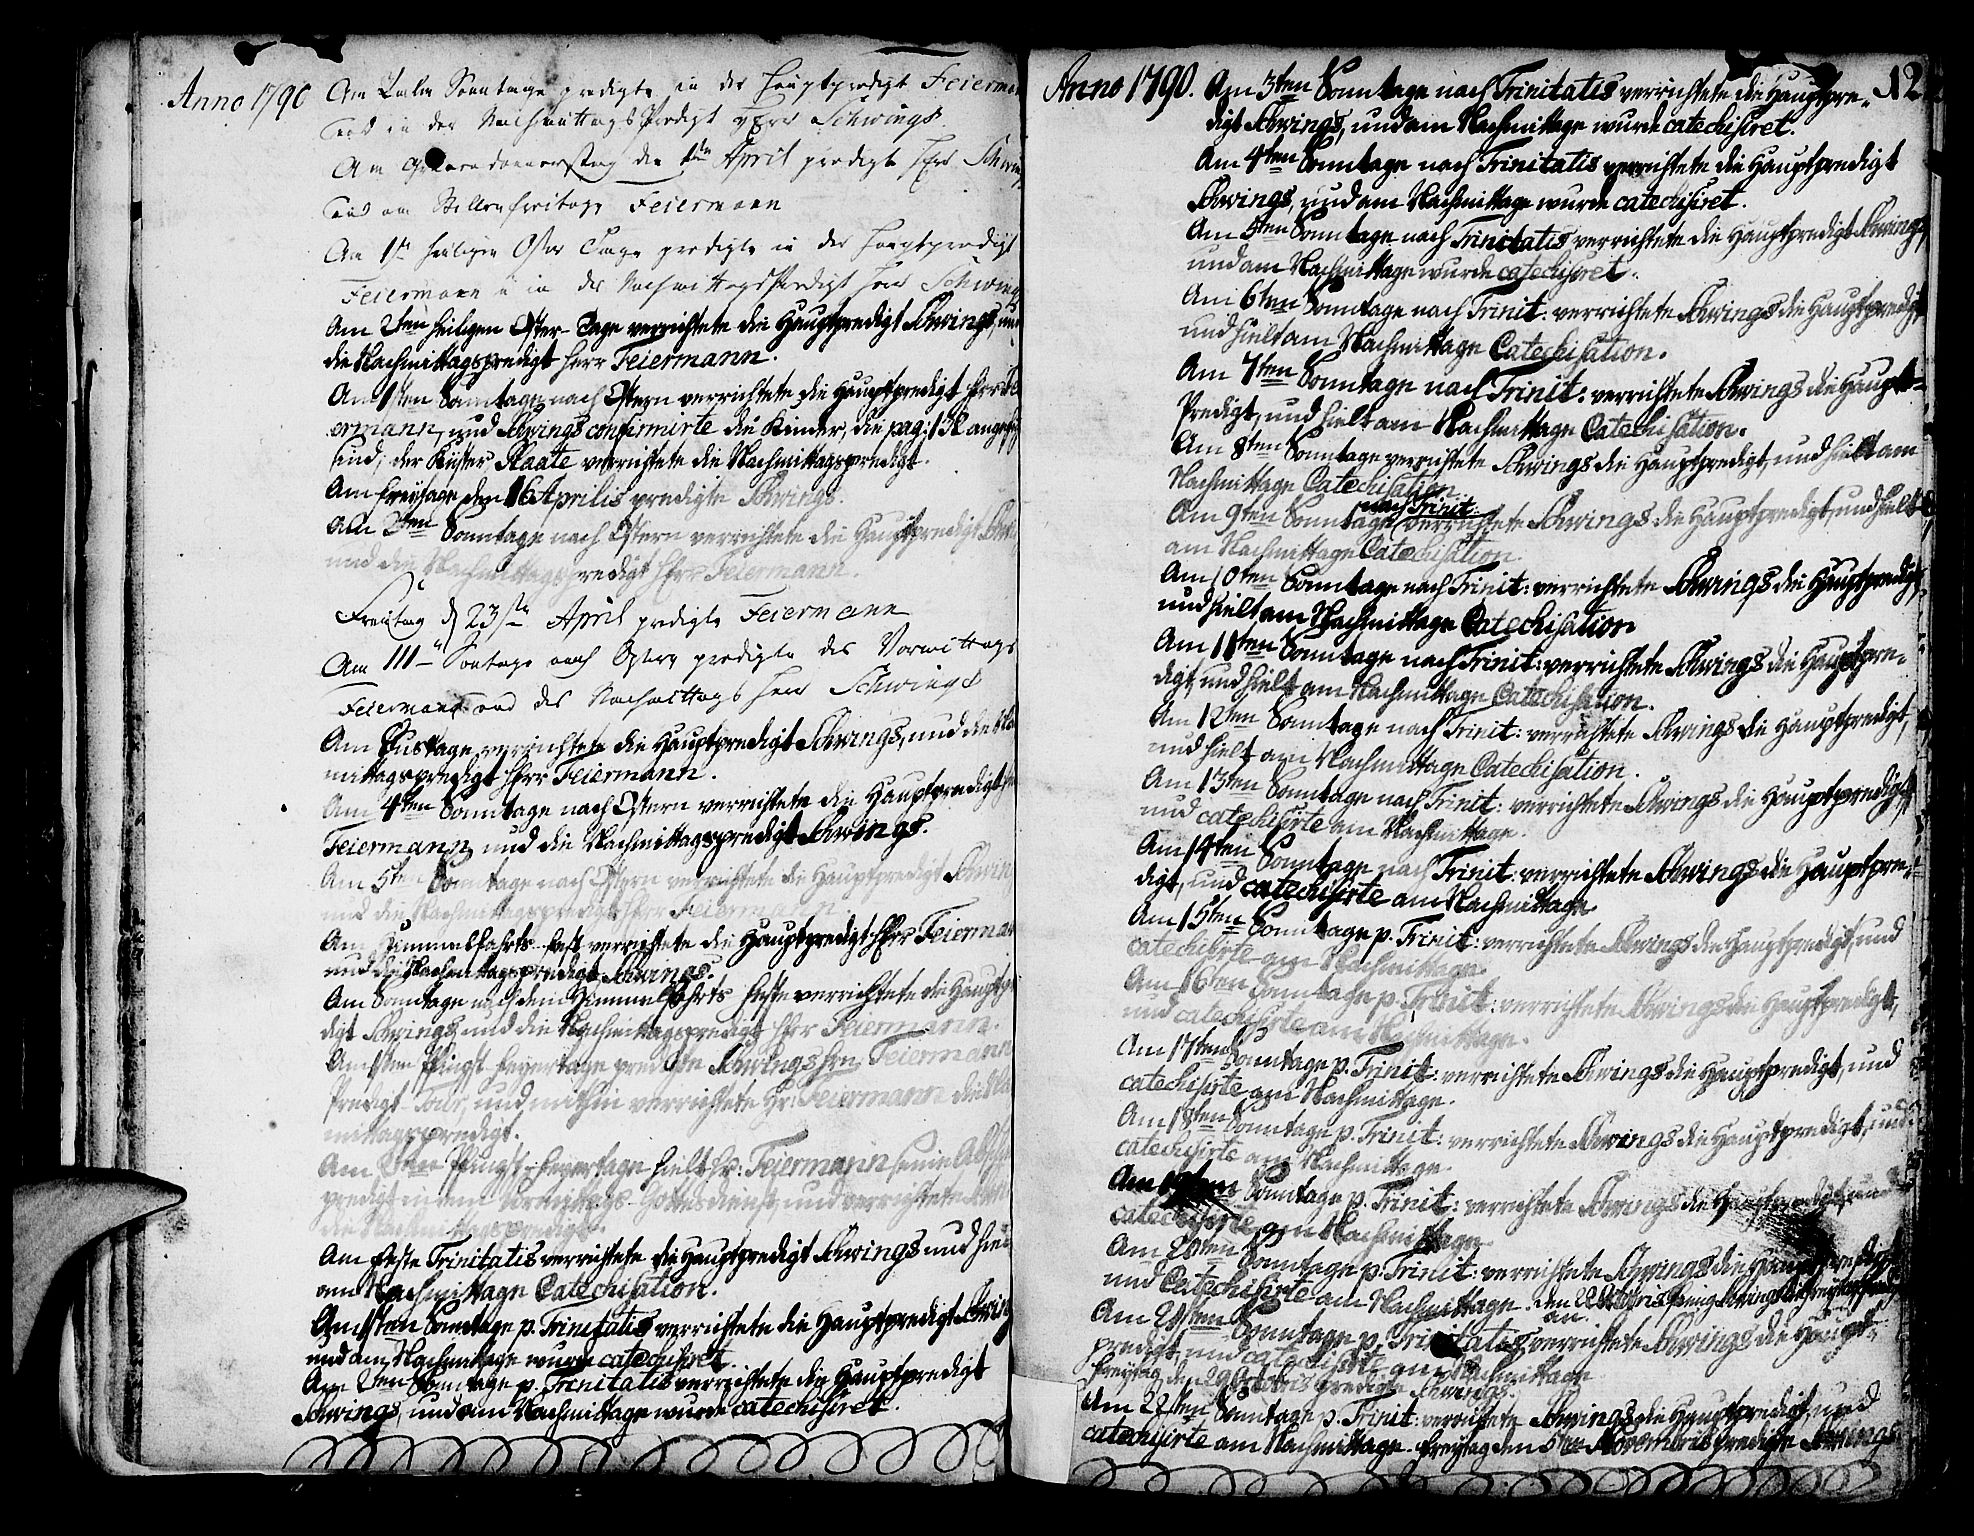 Anno 1790
Am Palm Sonntage predigte in der Hauptpredigt Feierman
und in der Nachmittags Predigt Herr Schwings
Am Grünendonnerstag den 1ten April predigte Herr Schwing
und am Stillenfreitage Feiermann
Am 1ten heiligen Oster Tage predigte in der Hauptpredigt
Feiermann u in der Nachmittags Predigt Herr Schwing
Am 2ten heiligen Oster-Tage verrichtete die Hauptpredigt Schwings, und
die Nachmittagspredigt Herr Feiermann.
Am 1sten Sonntage nach Ostern verrichtete die Hauptpredigt Herr Fei
ermann, und Schwings confirmirte die Kinder, die pag: 132 angeführt
sind, der Küster Plaate verrichtete die Nachmittagspredigt.
Am Freytage den 16 Aprilis predigte Schwings.
Am 2ten Sonntage nach Ostern verrichtete die Hauptpredigt Schwin
und die Nachmittagspredigt Herr Feiermann.
Freitag d 23ten April predigte Feiermann
Am III Sontage nach Ostern predigte des Vormittags
Feiermann und des Nachmittags Herr Schwings
Am Bustage verrichtete die Hauptpredigt Schwings, und die Nach
mittagspredigt Herr Feiermann.
Am 4ten Sonntage nach Ostern verrichtete die Hauptpredigt Herr
Feiermann, und die Nachmittagspredigt Schwings.
Am 5ten Sonntage nach Ostern verrichtete die Hauptpredigt Schwin
und die Nachmittagspredigt Herr Feiermann.
Am Himmelfahrts-Fest verrichtete die Hauptpredigt Herr Feierman
und die Nachmittagspredigt Schwings.
Am Sonntage nach dem Himmelfahrts Feste verrichtete die Hauptpre
digt Schwings und die Nachmittagspredigt Herr Feiermann.
Am 1sten Pfingst Feyertage predigte Schwings Hrn Feiermann
Predigt-Tour, und mithin verrichtete Hr: Feiermann die Nach
mittagspredigt.
Am 2ten Pfingst-Feyertage hielt Hr: Feiermann seine Abschieds
predigt in dem Vormittags-Gottesdienst, und verrichtete Schwin
die Nachmittagspredigt.
Am Feste Trinitatis verrichtete die Hauptpredigt Schwings und hielt
am Nachmittage Catechisation.
Am 1sten Sonntage p. Trinitatis verrichtete die Hauptpredigt Schwing
und am Nachmittage wurde catechisiret.
Am 2ten Sonntage p. Trinitatis verrichtete die Hauptpredigt
Schwings, und am Nachmittage wurde catechisiret.
Anno 1790.
12
Am 3ten Sonntage nach Trinitatis verrichtete die Hauptpre-
digt Schwings, und am Nachmittage wurde catechisiret.
Am 4ten Sonntage nach Trinitatis verrichtete die Hauptpredigt
Schwings, und am Nachmittage wurde catechisiret.
Am 5ten Sonntage nach Trinitatis verrichtete die Hauptpredigt Schwings,
und am Nachmittage wurde catechisiret.
Am 6ten Sonntage nach Trinit. verrichtete Schwings die Hauptpredigt,
und hielt am Nachmittage Catechisation.
Am 7ten Sonntage nach Trinit: verrichtete Schwings die Haupt-
Predigt, und hielt am Nachmittage Catechisation.
Am 8ten Sonntage verrichtete Schwings die Hauptpredigt, und hielt am
Nachmittage Catechisation.
nach Trinit:
Am 9ten Sonntage verrichtete Schwings die Hauptpredigt, und hielt
am Nachmittage Catechisation.
Am 10ten Sonntage nach Trinit: verrichtete Schwings die Hauptpredigt,
und hielt am Nachmittage Catechisation
Am 11ten Sonntage nach Trinit: verrichtete Schwings die Hauptpre-
digt, und hielt am Nachmittage Catechisation.
Am 12ten Sonntage nach Trinit: verrichtete Schwings die Hauptpredigt,
und hielt am Nachmittage Catechisation.
Am 13ten Sonntage nach Trinit: verrichtete Schwings die Hauptpredigt,
und catechisirte am Nachmittage.
Am 14ten Sonntage nach Trinit: verrichtete Schwings die Hauptpre-
digt, und catechisirte am Nachmittage.
Am 15ten Sonntage p. Trinit: verrichtete Schwings die Hauptpredigt, und
catechisirte am Nachmittage.
Am 16ten Sonntage p. Trinit: verrichtete Schwings die Hauptpredigt,
und catechisirte am Nachmittage.
Am 17ten Sonntage p. Trinit: verrichtete Schwings die Hauptpredigt, und
catechisirte am Nachmittage.
Am 18ten Sonntage p. Trinit: verrichtete Schwings die Hauptpredigt, und
catechisirte am Nachmittage.
Am 19ten Sonntage p. Trinit: verrichtete Schwings die Hauptpredigt, und
catechisirte am Nachmittage
Am 20ten Sonntage p. Trinit: verrichtete Schwings die Hauptpredigt
und Catechisirte am Nachmittage. den 22 Octobris fieng Schwings die Freytagspredigt
an.
Am 21sten Sonntage p. Trinitatis verrichtete Schwings die Haupt-
predigt, und catechisirte am Nachmittage
Freytag den 29 Octobris predigte Schwings.
Am 22sten Sonntage p. Trinit: verrichtete Schwings die Hauptpredigt, und
catechisirte am Nachmittage. Freytag den 5ten Novembris predigte Schwings